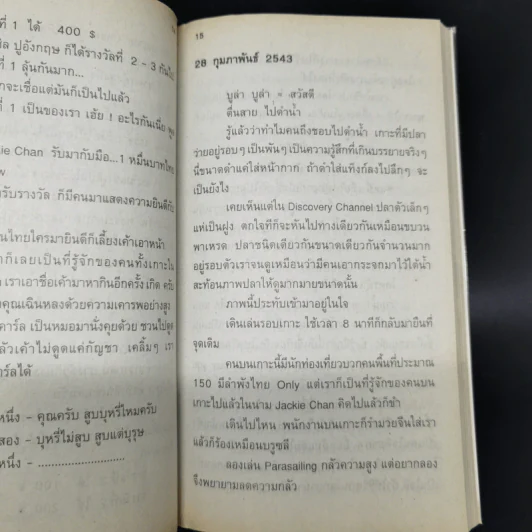 ที่ 1 ได้ 400 $
ปูอังกฤษ ก็ได้รางวัลที่ 2 - 3 กันไป
ที่ 1 ลุ้นกันมาก...
จะเชื่อแต่มันก็เป็นไปแล้ว
ที่ 1 เป็นของเรา เฮ้ย ! อะไรกันเนี่ย
Chan รับมากับมือ...1 หมื่นบาทไทย
รับรางวัล ก็มีคนมาแสดงความยินดีกับ
คนไทยใครมายินดีก็เลี้ยงเค้าเอาหน้า
ก็เลยเป็นที่รู้จักของคนทั้งเกาะใน
เราเอาชื่อเค้ามาหากินอีกครั้ง เกิด ครับ
คุณเฉินหลงด้วยความเคารพอย่างสูง
คาร์ล เป็นหมอมานั่งคุยด้วย ชวนไปสูด
เค้าไม่ดูดแค่กัญชา เคลิ้มๆ เรา
ได้
หนึ่ง - คุณครับ สูบบุหรี่ไหมครับ
สอง - บุหรี่ไม่สูบ สูบแต่บุรุษ
หนึ่ง - ........................
18
28 กุมภาพันธ์ 2543
บูล่า บูล่า = สวัสดี
ตื่นสาย ไปดำน้ำ
รู้แล้วว่าทำไมคนถึงชอบไปดำน้ำ เกาะที่มีปลา
ว่ายอยู่รอบๆ เป็นพันๆ เป็นความรู้สึกที่เกินบรรยายจริงๆ
นี่ขนาดดำแค่ใส่หน้ากาก ถ้าดำใส่แท็งก์ลงไปลึกๆ จะ
เป็นยังไง
เคยเห็นแต่ใน Discovery Channel ปลาตัวเล็กๆ
แห่เป็นฝูง ตกใจทีก็จะหันไปทางเดียวกันเหมือนขบวน
พาเหรด ปลาชนิดเดียวกันขนาดเดียวกันจำนวนมาก
อยู่รอบตัวเราจนดูเหมือนว่ามีคนเอากระจกมาไว้ใต้น้ำ
สะท้อนภาพปลาให้ดูมากมายขนาดนั้น
ภาพนี้ประทับเข้ามาอยู่ในใจ
เดินเล่นรอบเกาะ ใช้เวลา 8 นาทีก็กลับมายืนที่
จุดเดิม
คนบนเกาะนี้มีนักท่องเที่ยวบวกคนพื้นที่ประมาณ
150 มีลำพังไทย Only แต่เราก็เป็นที่รู้จักของคนบน
เกาะไปแล้วในนาม Jackie Chan คิดไปแล้วก็ขำ
เดินไปไหน พนักงานบนเกาะก็รำมวยจีนใส่เรา
แล้วก็ร้องเหมือนบรูซลี
ลองเล่น Parasailing กลัวความสูง แต่อยากลอง
จึงพยายามลดความกลัว